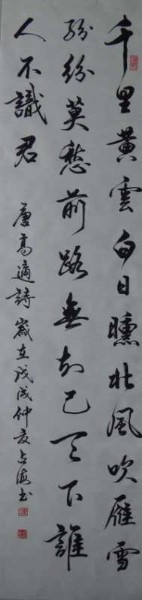 千里黃雲白日曛北風吹雁雪
紛紛莫愁前路無知己天下誰
人不識君 唐高適詩歲在戊戌仲夏書